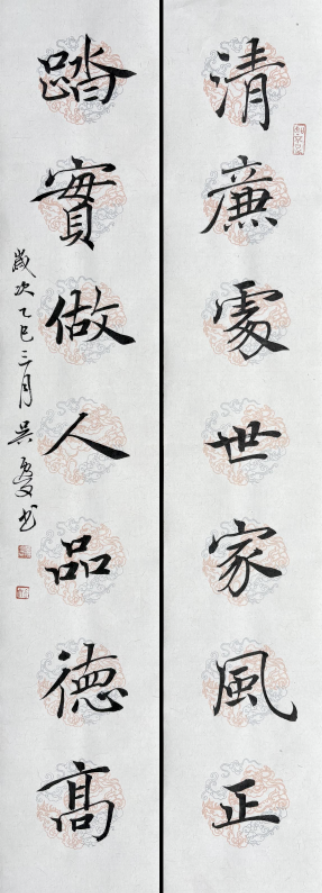 清廉處世家風正
踏實做人品德高
歲次乙巳三月吳慶书